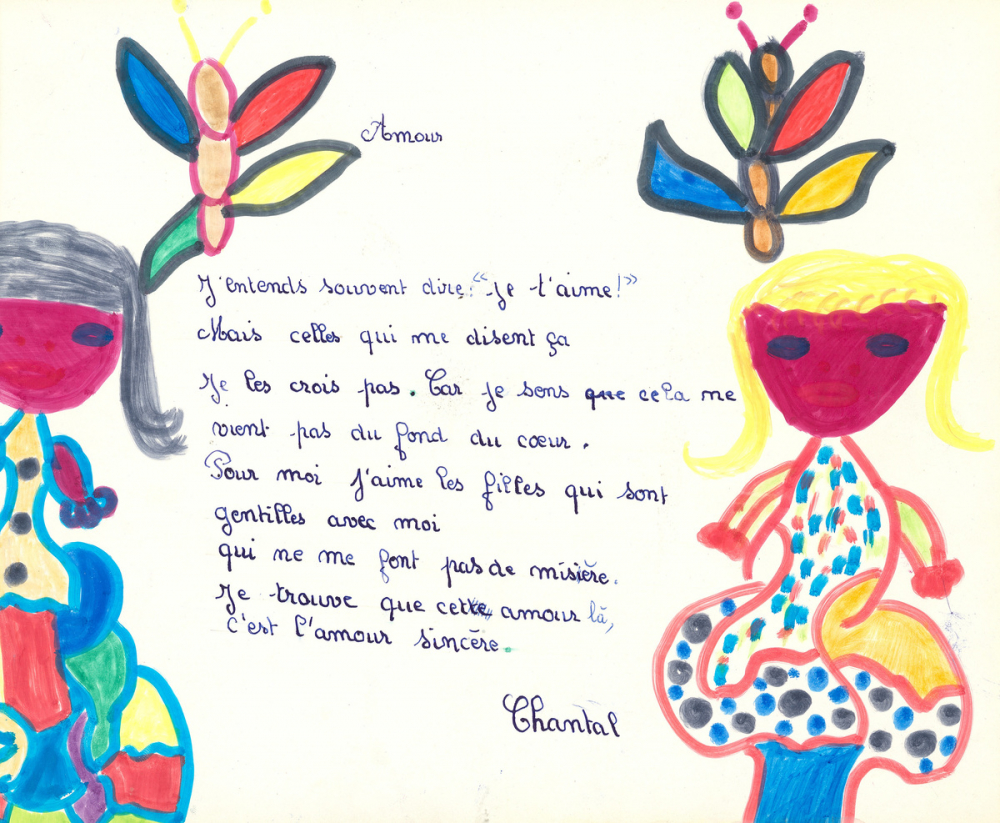 Amour
J'entends souvent dire: "je t'aime!"
Mais celles qui me disent ça
Je les crois pas. Car je sens que cela me
vient pas du fond du cœur.
Pour moi j'aime les filles qui sont
gentilles avec moi
qui ne me font pas de misière.
Je trouve que cette amour là,
c'est l'amour sincère.
Chantal